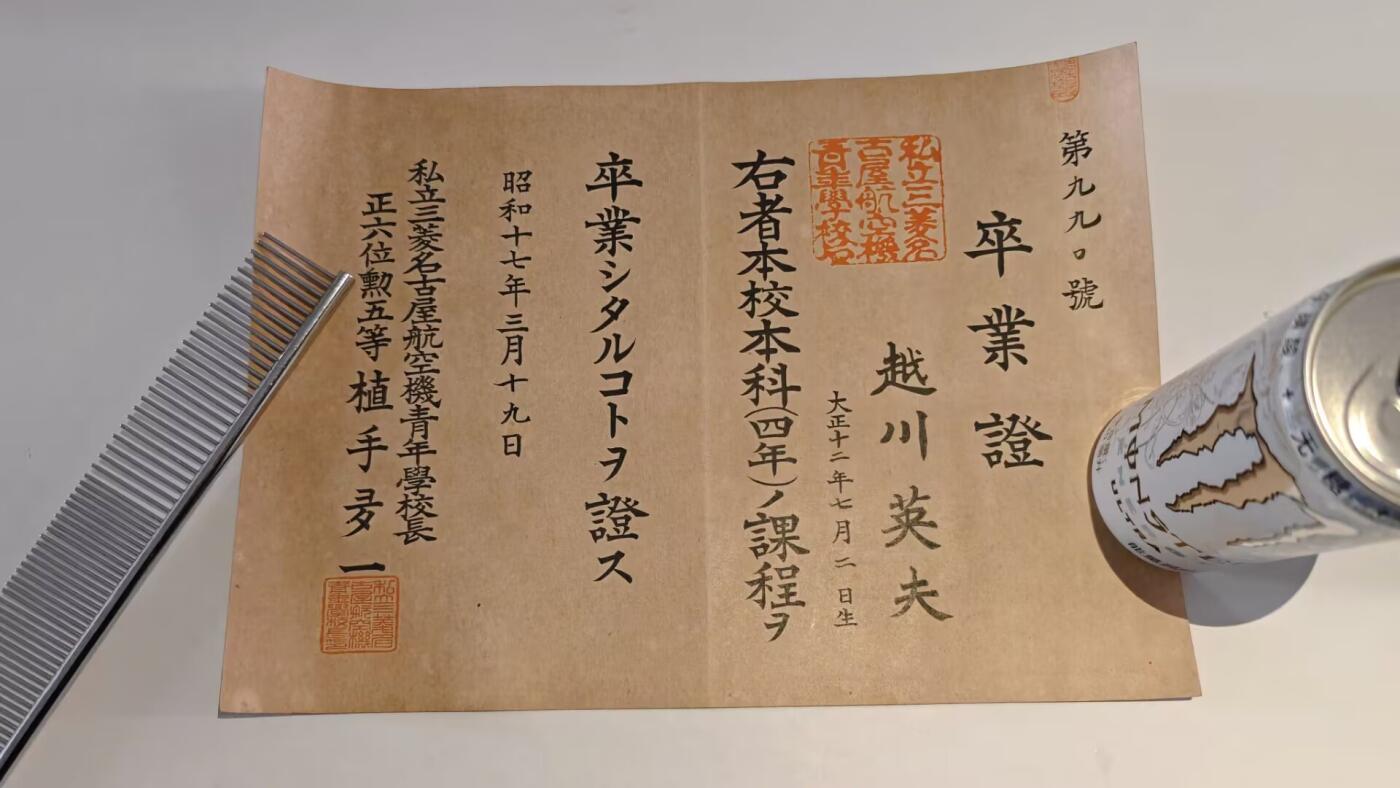 第九九〇號
卒業證
私立三菱名
古屋航空機
青年學校印
越川英夫
大正十二年七月二日生
右者本校本科(四年)ノ課程ヲ
卒業シタルコトヲ證ス
昭和十七年三月十九日
私立三菱名古屋航空機青年學校長
正六位勲五等植手
一